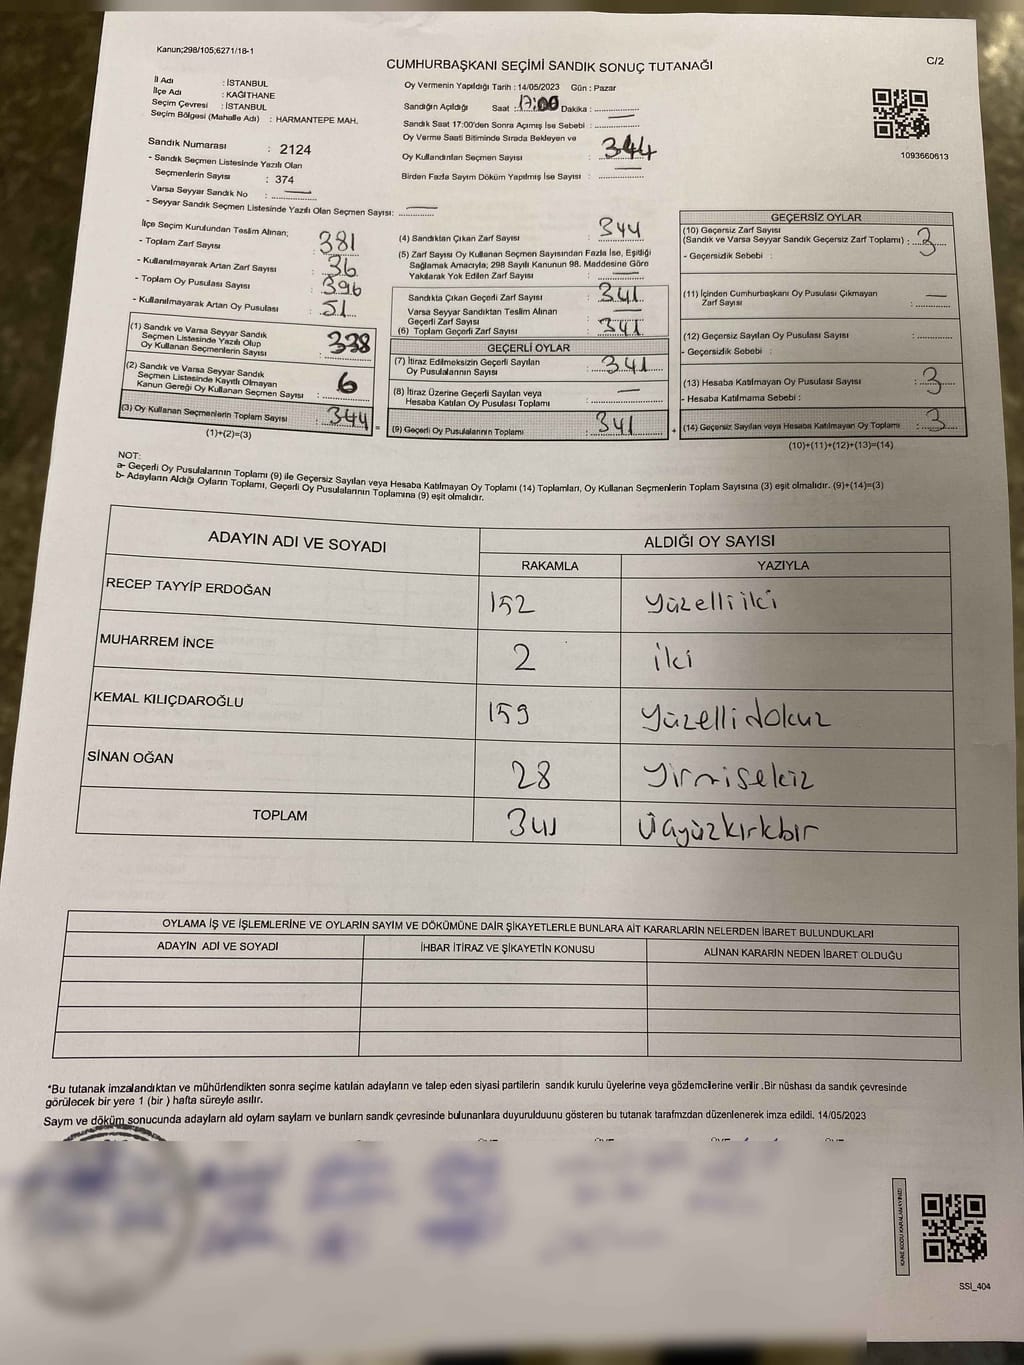 Kanun;298/105;6271/18-1
CUMHURBAŞKANI SEÇİMİ SANDIK SONUÇ TUTANAĞI
C/2
İl Adı : İSTANBUL
İlçe Adı : KAĞITHANE
Seçim Çevresi : İSTANBUL
Seçim Bölgesi (Mahalle Adı) : HARMANTEPE MAH.
Oy Vermenin Yapıldığı Tarih : 14/05/2023 Gün : Pazar
Sandığın Açıldığı Saat : 17:00 Dakika :
Sandık Saat 17:00'den Sonra Açımış İse Sebebi :
Oy Verme Saati Bitiminde Sırada Bekleyen ve
Oy Kullandırılan Seçmen Sayısı : 344
Birden Fazla Sayım Döküm Yapılmış İse Sayısı :
1093660613
Sandık Numarası : 2124
- Sandık Seçmen Listesinde Yazılı Olan
Seçmenlerin Sayısı : 374
Varsa Seyyar Sandık No :
- Seyyar Sandık Seçmen Listesinde Yazılı Olan Seçmen Sayısı:
İlçe Seçim Kurulundan Teslim Alınan;
- Toplam Zarf Sayısı : 381
- Kullanılmayarak Artan Zarf Sayısı : 36
- Toplam Oy Pusulası Sayısı : 396
- Kullanılmayarak Artan Oy Pusulası : 51
(1) Sandık ve Varsa Seyyar Sandık
Seçmen Listesinde Yazılı Olup
Oy Kullanan Seçmenlerin Sayısı : 338
(2) Sandık ve Varsa Seyyar Sandık
Seçmen Listesinde Kayıtlı Olmayan
Kanun Gereği Oy Kullanan Seçmen Sayısı : 6
(3) Oy Kullanan Seçmenlerin Toplam Sayısı : 344 =
(1)+(2)=(3)
(4) Sandıktan Çıkan Zarf Sayısı : 344
(5) Zarf Sayısı Oy Kullanan Seçmen Sayısından Fazla İse, Eşitliği
Sağlamak Amacıyla; 298 Sayılı Kanunun 98. Maddesine Göre
Yakılarak Yok Edilen Zarf Sayısı :
Sandıkta Çıkan Geçerli Zarf Sayısı : 341
Varsa Seyyar Sandıktan Teslim Alınan
Geçerli Zarf Sayısı :
(6) Toplam Geçerli Zarf Sayısı : 341
GEÇERLİ OYLAR
(7) İtiraz Edilmeksizin Geçerli Sayılan
Oy Pusulalarının Sayısı : 341
(8) İtiraz Üzerine Geçerli Sayılan veya
Hesaba Katılan Oy Pusulası Toplamı :
(9) Geçerli Oy Pusulalarının Toplamı : 341 +
GEÇERSİZ OYLAR
(10) Geçersiz Zarf Sayısı
(Sandık ve Varsa Seyyar Sandık Geçersiz Zarf Toplamı) : 3
- Geçersizlik Sebebi :
(11) İçinden Cumhurbaşkanı Oy Pusulası Çıkmayan
Zarf Sayısı :
(12) Geçersiz Sayılan Oy Pusulası Sayısı :
- Geçersizlik Sebebi :
(13) Hesaba Katılmayan Oy Pusulası Sayısı : 3
- Hesaba Katılmama Sebebi :
(14) Geçersiz Sayılan veya Hesaba Katılmayan Oy Toplamı : 3
(10)+(11)+(12)+(13)=(14)
NOT:
a- Geçerli Oy Pusulalarının Toplamı (9) ile Geçersiz Sayılan veya Hesaba Katılmayan Oy Toplamı (14) Toplamları, Oy Kullanan Seçmenlerin Toplam Sayısına (3) eşit olmalıdır. (9)+(14)=(3)
b- Adayların Aldığı Oyların Toplamı, Geçerli Oy Pusulalarının Toplamına (9) eşit olmalıdır.
ADAYIN ADI VE SOYADI
ALDIĞI OY SAYISI
RAKAMLA YAZIYLA
RECEP TAYYİP ERDOĞAN 152 yüzelliiki
MUHARREM İNCE 2 iki
KEMAL KILIÇDAROĞLU 159 yüzellidokuz
SİNAN OĞAN 28 yirmisekiz
TOPLAM 341 üçyüzkırkbir
OYLAMA İŞ VE İŞLEMLERİNE VE OYLARIN SAYIM VE DÖKÜMÜNE DAİR ŞİKAYETLERLE BUNLARA AİT KARARLARIN NELERDEN İBARET BULUNDUKLARI
ADAYIN ADI VE SOYADI İHBAR İTİRAZ VE ŞİKAYETİN KONUSU ALINAN KARARIN NEDEN İBARET OLDUĞU
*Bu tutanak imzalandıktan ve mühürlendikten sonra seçime katılan adayların ve talep eden siyasi partilerin sandık kurulu üyelerine veya gözlemcilerine verilir .Bir nüshası da sandık çevresinde
görülecek bir yere 1 (bir ) hafta süreyle asılır.
Sayım ve döküm sonucunda adayların ald oyların sayların ve bunların sandk çevresinde bulunanlara duyurulduunu gösteren bu tutanak tarafmzdan düzenlenerek imza edildi. 14/05/2023
KARE KODU KARALAMAYINIZ!
SSİ_404